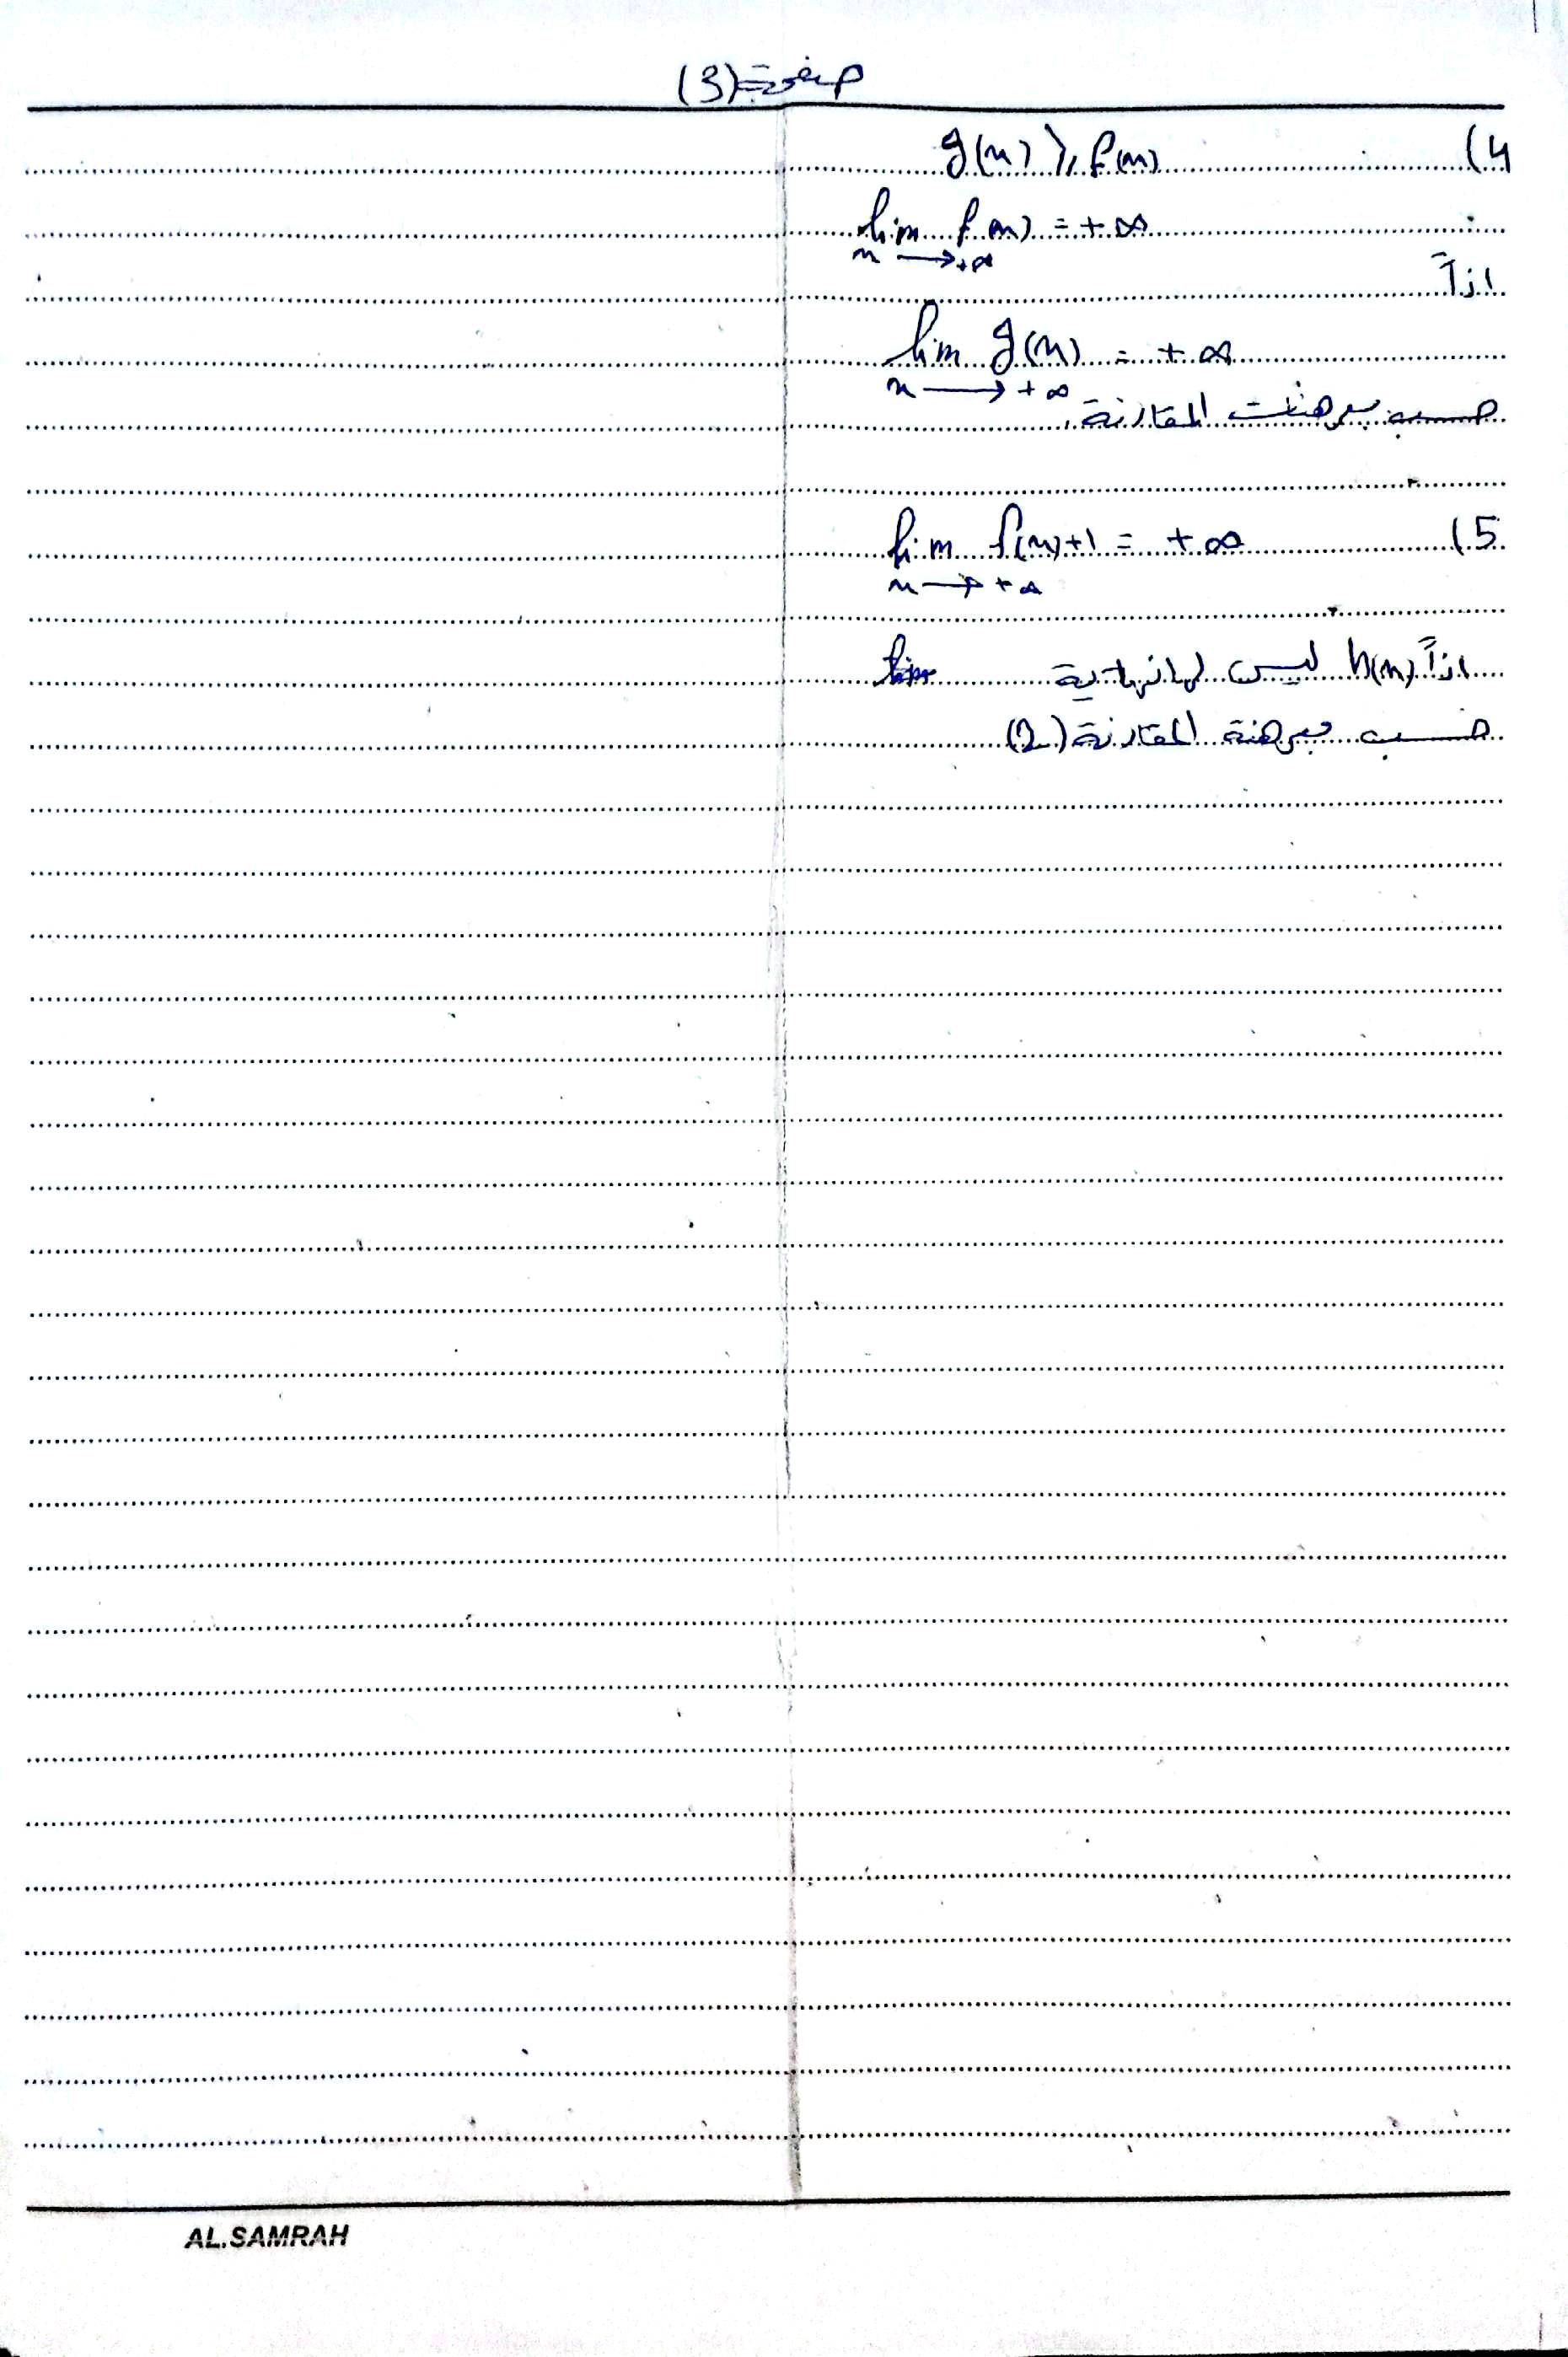 صفحة (3)
4) g(x) ⩾ f(x)
lim f(x) = +∞
x → +∞
اذاً
lim g(x) = +∞
x → +∞
حسب مبرهنات المقارنة.
5) lim f(x)+1 = +∞
x → +∞
اذاً h(x) ليس لها نهاية
حسب مبرهنة المقارنة (2)
AL.SAMRAH